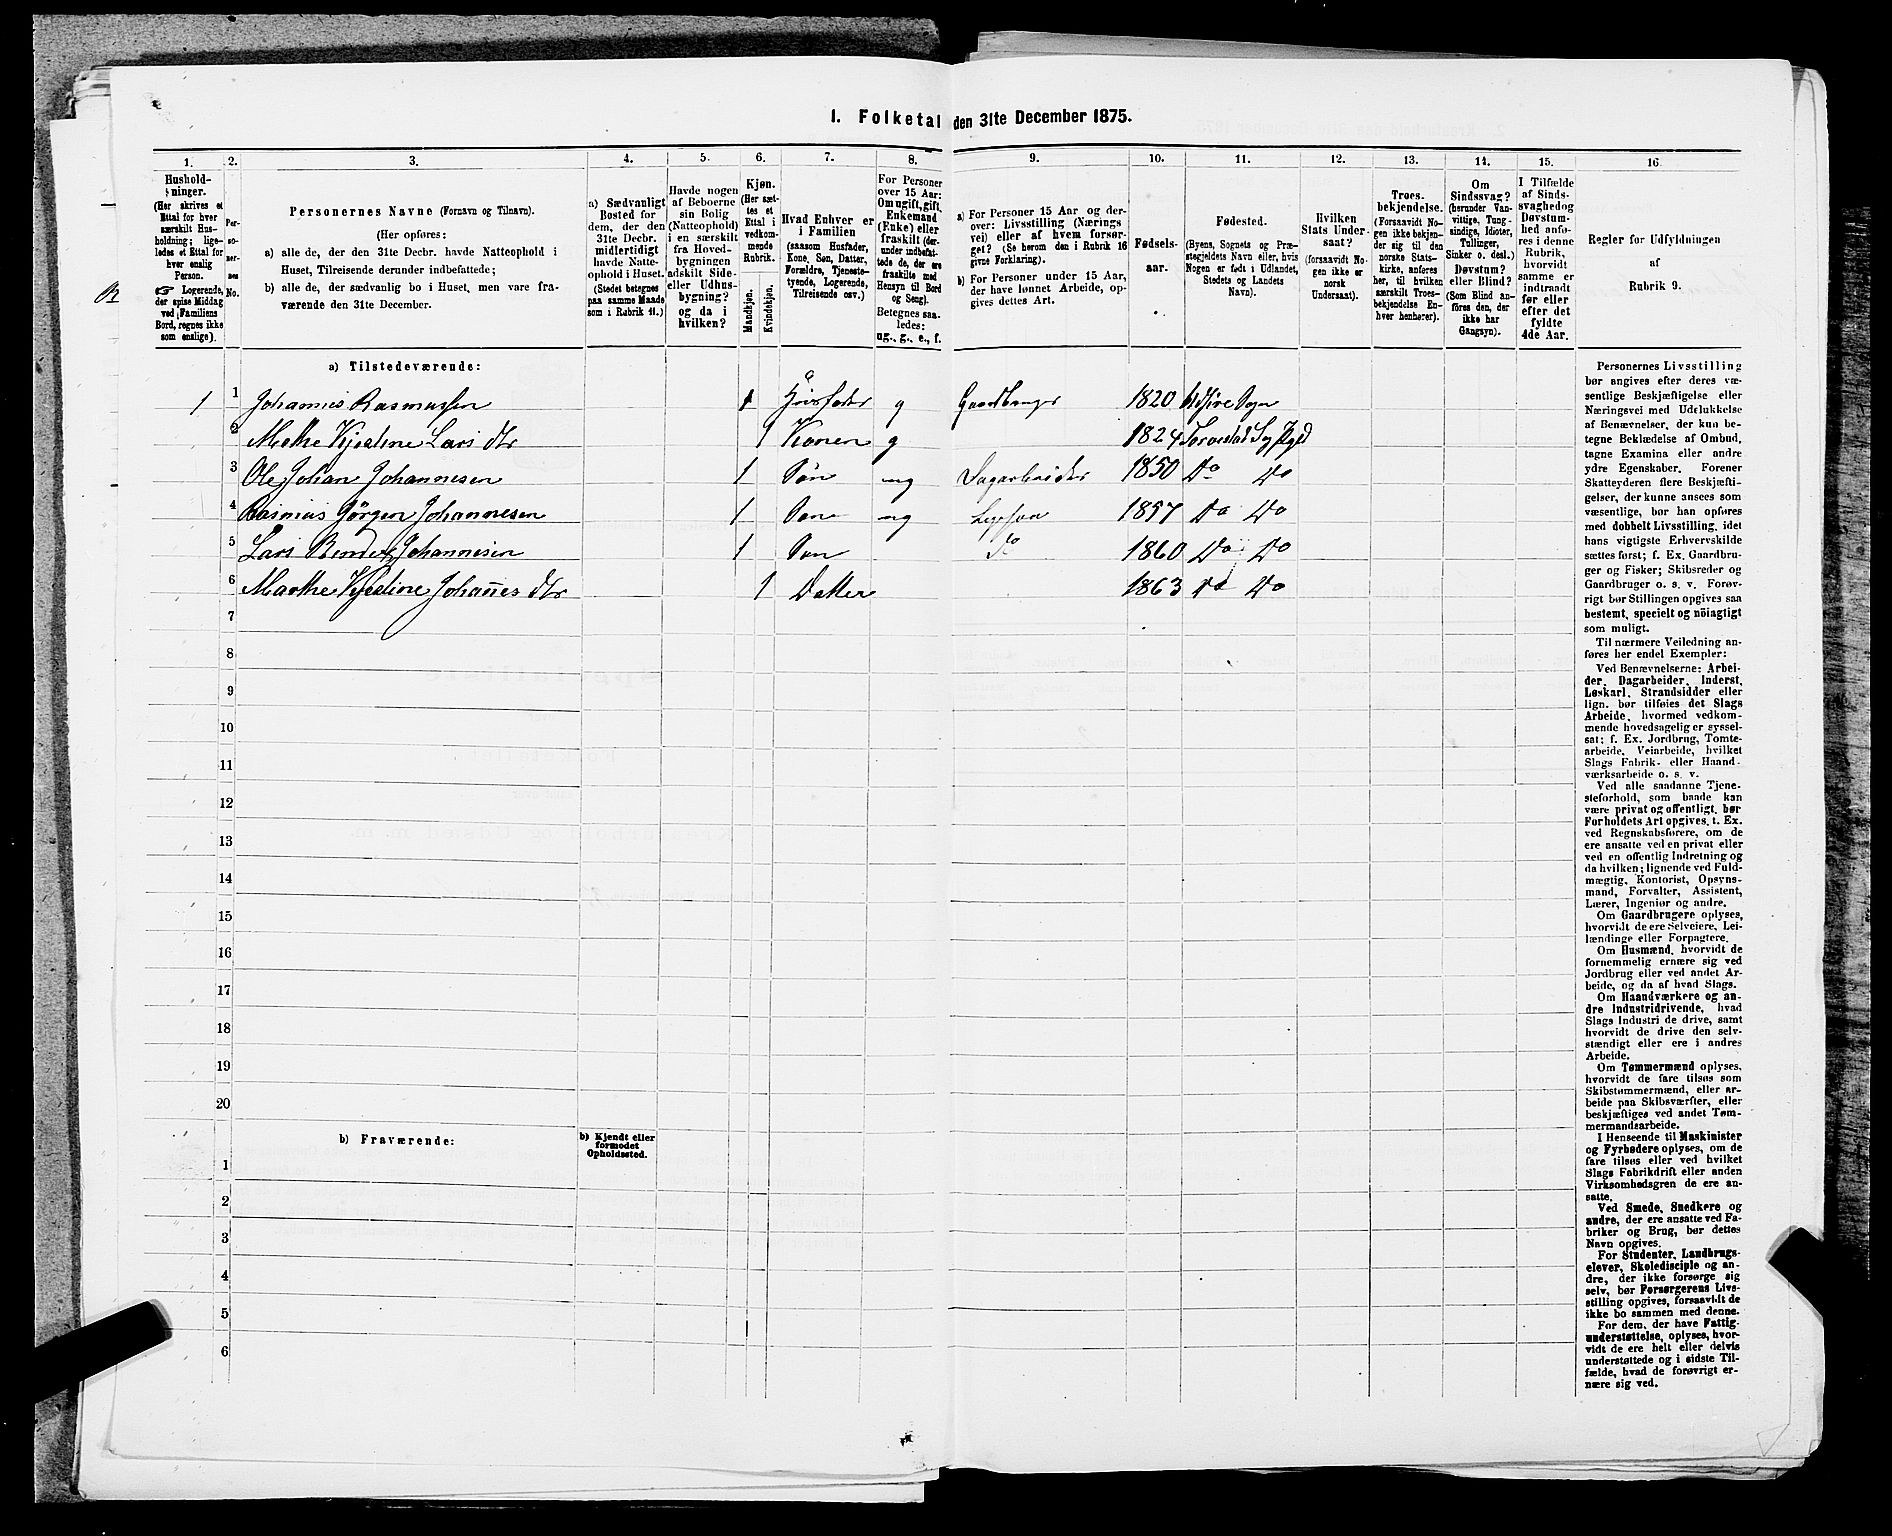 1. Folketal den 31te December 1875.
1. 2. 3. 4. 5. 6. 7. 8. 9. 10. 11. 12. 13. 14. 15. 16
Hushold-
ninger.
(Her skrives et
Ettal for hver
særskilt Hus-
holdning; lige-
ledes et Ettal for
hver enslig
Person.
☞ Logerende,
der spise Middag
ved Familiens
Bord, regnes ikke
som enslige).
Per-
so-
ner-
nes
No.
Personernes Navne (Fornavn og Tilnavn).
(Her opføres:
a) alle de, der den 31te Decbr. havde Natteophold i
Huset, Tilreisende derunder indbefattede;
b) alle de, der sædvanlig bo i Huset, men vare fra-
værende den 31te December.
a) Sædvanligt
Bosted for
dem, der den
31te Decbr.
midlertidigt
havde Natte-
ophold i Huset.
(Stedet betegnes
paa samme Maade
som i Rubrik 11.)
Havde nogen
af Beboerne
sin Bolig
(Natteophold)
i en særskilt
fra Hoved-
bygningen
adskilt Side-
eller Udhus-
bygning?
og da i
hvilken?
Kjøn.
(Her sæt-
tes et
Ettal i
vedkom-
mende
Rubrik.
Mandkjøn.
Kvindekjøn.
Hvad Enhver er
i Familien
(saasom Husfader,
Kone, Søn, Datter,
Forældre, Tjeneste-
tyende, Logerende,
Tilreisende osv.)
For Personer
over 15 Aar:
Om ugift, gift,
Enkemand
(Enke) eller
fraskilt (der-
under indbefat-
tede de, der ere
fraskilte med
Hensyn til Bord
og Seng).
Betegnes saa-
ledes:
ug., g., e., f.
a) For Personer 15 Aar og der-
over: Livsstilling (Nærings
vei) eller af hvem forsør-
get? (Se herom den i Rubrik 16
givne Forklaring).
b) For Personer under 15 Aar,
der have lønnet Arbeide, op-
gives dettes Art.
Fødsels-
aar.
Fødested.
(Byens, Sognets og Præ-
stegjeldets Navn eller, hvis
Nogen er født i Udlandet,
Stedets og Landets
Navn).
Hvilken
Stats Under-
saat?
(forsaavidt No-
gen ikke er
norsk
Undersaat).
Troes-
bekjendelse.
(Forsaavidt No-
gen ikke bekjen-
der sig til den
norske Stats-
kirke, anføres
her, til hvilken
særskilt Troes-
bekjendelse En-
hver henhører).
Om
Sindssvag?
(herunder Van-
vittige, Tung-
sindige, Idioter,
Tullinger,
Sinker o. desl.)
Døvstum?
eller Blind?
(Som Blind an-
føres den, der
ikke har
Gangsyn).
I Tilfælde
af Sinds-
svaghed og
Døvstum-
hed anfø-
res i denne
Rubrik,
hvorvidt
samme er
indtraadt
før eller
efter det
fyldte
4de Aar.
Regler for Udfyldningen
af
Rubrik 9.
a) Tilstedeværende:
1 1 Johannes Rasmussen 1 Huusfader g Gaardbruger 1820 Sogn
2 Marthe Kjestine Lars dtr 1 Konen g 1824 Torvestad
3 Ole Johan Johannesen 1 Søn ug Dagarbeider 1850 Do Do
4 Rasmus Jørgen Johannesen 1 Søn ug 1857 Do Do
5 Lars Johannesen 1 Søn Do 1860 Do Do
6 Marthe Kjestine Johannes dtr 1 Datter 1863 Do Do
7
8
9
10
11
12
13
14
15
16
17
18
19
20
b) Fraværende:
b) Kjendt eller
formodet
Opholdssted.
1
2
3
4
5
6
Personernes Livsstilling
bør angives efter deres væ-
sentlige Beskjæftigelse eller
Næringsvei med Udelukkelse
af Benævnelser, der kun be-
tegne Beklædelse af Ombud,
tagne Examina eller andre
ydre Egenskaber. Forener
Skatteyderen flere Beskjæfti-
gelser, der kunne ansees som
væsentlige, bør han opføres
med dobbelt Livsstilling, idet
hans vigtigste Erhvervskilde
sættes først; f. Ex. Gaardbru-
ger og Fisker; Skibsreder og
Gaardbruger o. s. v. Forøv-
rigt bør Stillingen opgives saa
bestemt, specielt og nöiagtigt
som muligt.
Til nærmere Veiledning an-
føres her endel Exempler:
Ved Benævnelserne: Arbei-
der, Dagarbeider, Inderst,
Løskarl, Strandsidder eller
lign. bør tilføies det Slags
Arbeide, hvormed vedkom-
mende hovedsagelig er syssel-
sat; f. Ex. Jordbrug, Tomte-
arbeide, Veiarbeide, hvilket
Slags Fabrik- eller Haand-
værksarbeide o. s. v.
Ved alle saadanne Tjene-
steforhold, som baade kan
være privat og offentligt, bør
Forholdets Art opgives, t. Ex.
ved Regnskabsførere, om de
ere ansatte ved en privat eller
ved en offentlig Indretning og
da hvilken; lignende ved Fuld-
mægtig, Kontorist, Opsyns-
mand, Forvalter, Assistent,
Lærer, Ingeniør og andre.
Om Gaardbrugere oplyses,
hvorvidt de ere Selveiere, Lei-
lændinge eller Forpagtere.
Om Husmænd, hvorvidt de
fornemmelig ernære sig ved
Jordbrug eller ved andet Ar-
beide, og da af hvad Slags.
Om Haandværkere og an-
dre Industridrivende, hvad
Slags Industri de drive, samt
hvorvidt de drive den selv-
stændigt eller ere i andres
Arbeide.
Om Tømmermænd oplyses,
hvorvidt de fare tilsøs som
Skibstømmermænd, eller ar-
beide paa Skibsværfter, eller
beskjæftiges ved andet Tøm-
mermandsarbeide.
I Henseende til Maskinister
og Fyrbødere oplyses, om de
fare tilsøs eller ved hvilket
Slags Fabrikdrift eller anden
Virksomhedsgren de ere an-
satte.
Ved Smede, Snedkere og
andre, der ere ansatte ved Fa-
briker og Brug, bør dettes
Navn opgives.
For Studenter, Landbrugs-
elever, Skoledisciple og an-
dre, der ikke forsørge sig
selv, bør Forsørgerens Livs-
stilling opgives, forsaavidt de
ikke bo sammen med denne.
For dem, der have Fattig-
understøttelse, oplyses, hvor-
vidt de ere helt eller delvis
understøttede og i sidste Til-
fælde, hvad de forøvrigt er-
nære sig ved.